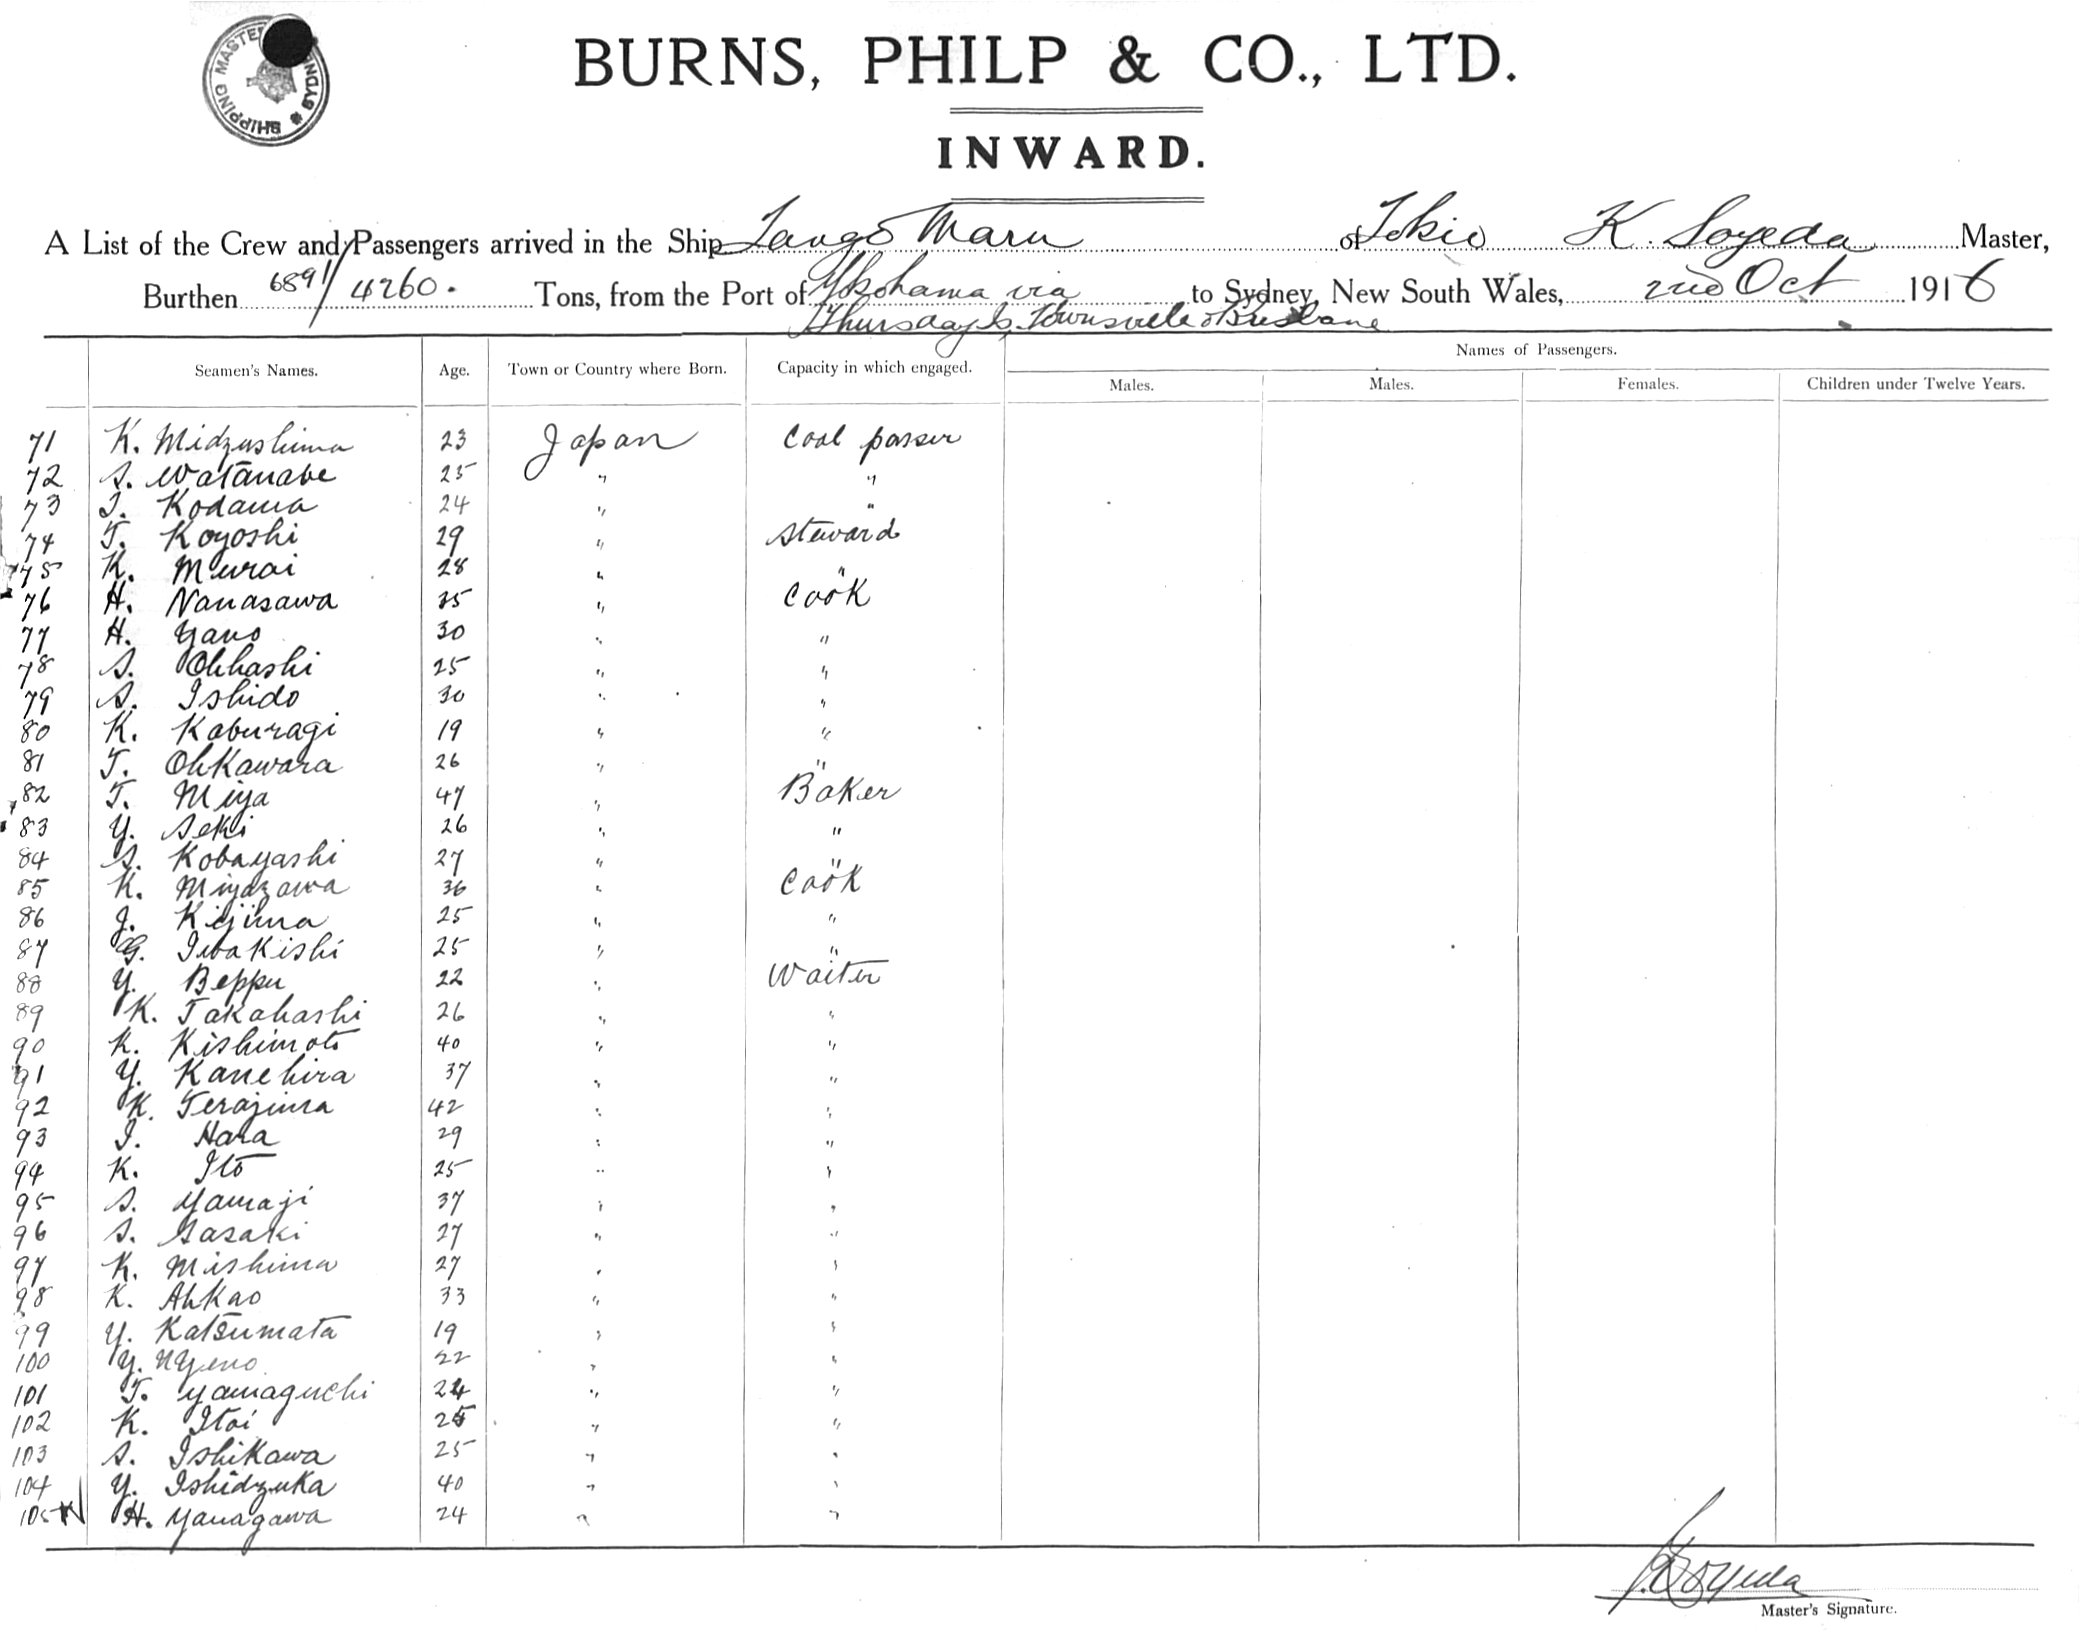 SHIPPING MASTER SYDN
BURNS, PHILP & CO., LTD.
INWARD.
A List of the Crew and Passengers arrived in the Ship Tango Maru of Tokio K. Soyeda Master,
Burthen 6891/4260. Tons, from the Port of Yokohama via to Sydney, New South Wales, 2nd Oct 1916
Thursday Is. Townsville & Brisbane
Seamen's Names. Age. Town or Country where Born. Capacity in which engaged. Names of Passengers.
Males. Males. Females. Children under Twelve Years.
71 K. Midzushima 23 Japan Coal passer
72 S. Watanabe 25 " "
73 I. Kodama 24 " "
74 T. Koyoshi 29 " Steward
75 K. Murai 28 " "
76 H. Nanasawa 35 " Cook
77 H. Yano 30 " "
78 S. Ohhashi 25 " "
79 S. Ishido 30 " "
80 K. Kaburagi 19 " "
81 T. Ohkawara 26 " "
82 T. Miya 47 " Baker
83 Y. Seki 26 " "
84 S. Kobayashi 27 " "
85 K. Miyazawa 36 " Cook
86 J. Kijima 25 " "
87 G. Iwakishi 25 " "
88 Y. Beppu 22 " Waiter
89 K. Takahashi 26 " "
90 K. Kishimoto 40 " "
91 Y. Kanehira 37 " "
92 K. Terajima 42 " "
93 I. Hara 29 " "
94 K. Ito 25 " "
95 S. Yamaji 37 " "
96 S. Sasaki 27 " "
97 K. Mishima 27 " "
98 K. Ahkao 33 " "
99 Y. Katsumata 19 " "
100 Y. Uyeno 22 " "
101 T. Yamaguchi 24 " "
102 K. Itoi 25 " "
103 S. Ishikawa 25 " "
104 Y. Ishidzuka 40 " "
105 H. Yanagawa 24 " "
K. Soyeda
Master's Signature.